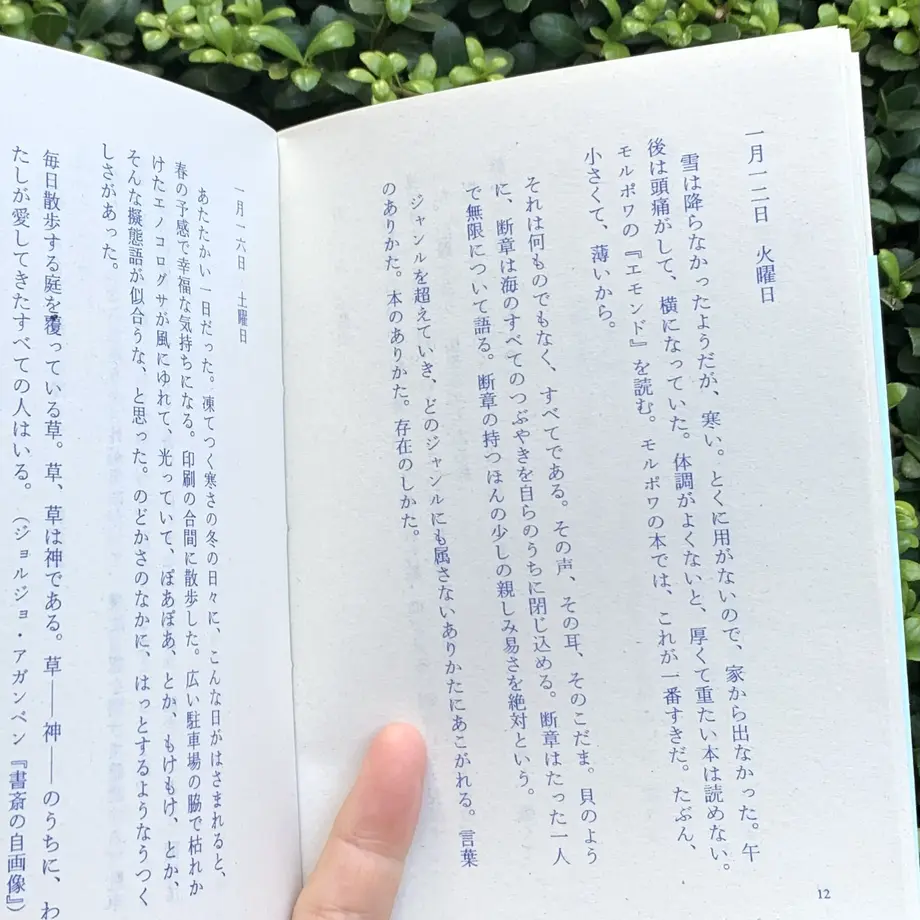 一月一二日　火曜日
雪は降らなかったようだが、寒い。とくに用がないので、家から出なかった。午
後は頭痛がして、横になっていた。体調がよくないと、厚くて重たい本は読めない。
モルポワの『エモンド』を読む。モルポワの本では、これが一番すきだ。たぶん、
小さくて、薄いから。
それは何ものでもなく、すべてである。その声、その耳、そのこだま。貝のよう
に、断章は海のすべてのつぶやきを自らのうちに閉じ込める。断章はたった一人
で無限について語る。断章の持つほんの少しの親しみ易さを絶対という。
ジャンルを超えていき、どのジャンルにも属さないありかたにあこがれる。言葉
のありかた。本のありかた。存在のしかた。
12
一月一六日　土曜日
あたたかい一日だった。凍てつく寒さの冬の日々に、こんな日がはさまれると、
春の予感で幸福な気持ちになる。印刷の合間に散歩した。広い駐車場の脇で枯れか
けたエノコログサが風にゆれて、光っていて、ぽあぽあ、とか、もけもけ、とか、
そんな擬態語が似合うな、と思った。のどかさのなかに、はっとするようなうつく
しさがあった。
毎日散歩する庭を覆っている草。草、草は神である。草――神――のうちに、わ
たしが愛してきたすべての人はいる。（ジョルジョ・アガンベン『書斎の自画像』）